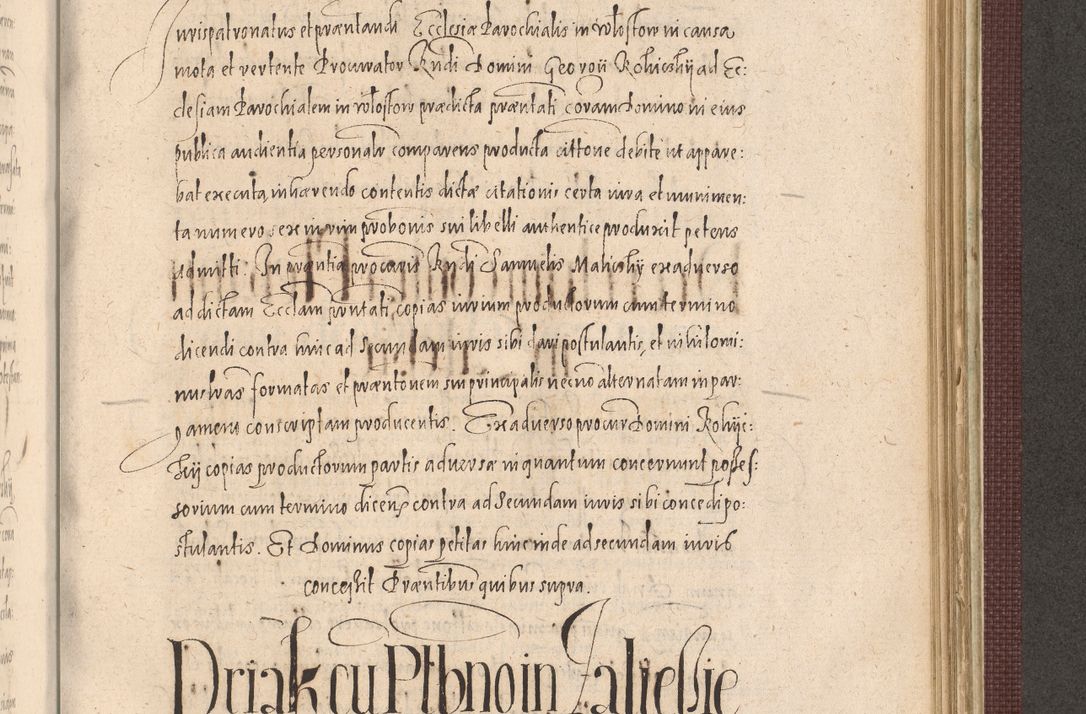 Jurispatronatus et præntandi Ecclesiæ Parochialis in Wlostow in causa
mota et vertente Procurator Rndi Domini Georgii Rokiczky ad Ec:
clesiam Parochialem in Wlostow prædicta præntati coram Domino in eius
publica audientia personalr comparens producta cittone debite ut appare:
bat executa, inhærendo contentis dictæ citationis certa iura et munimen:
ta numero sex in vim probonis sui libelli authentice produxit petens
admitti. In præntia procuris Rndi Samuelis Malicsky ex adverso
ad dictam Ecclam prntati, copias iurium productorum cum termino
dicendi contra hinc ad Secundam iuris sibi dari postulantis, et nihilomi:
nus lras formatas et præntonem sui principalis necno alternatam in par:
gameno conscriptam producentis. Ex adverso procur Domini Rokyc:
kij copias productorum partis adversæ in quantum concernunt posses:
sorium cum termino dicen contra ad Secundam iuris sibi concedi po:
stulantis. Et Dominus copias petitas hinc inde ad secundam iuris
concessit Præntibus quibus supra.
Driak cu Plbno in Zaliessie